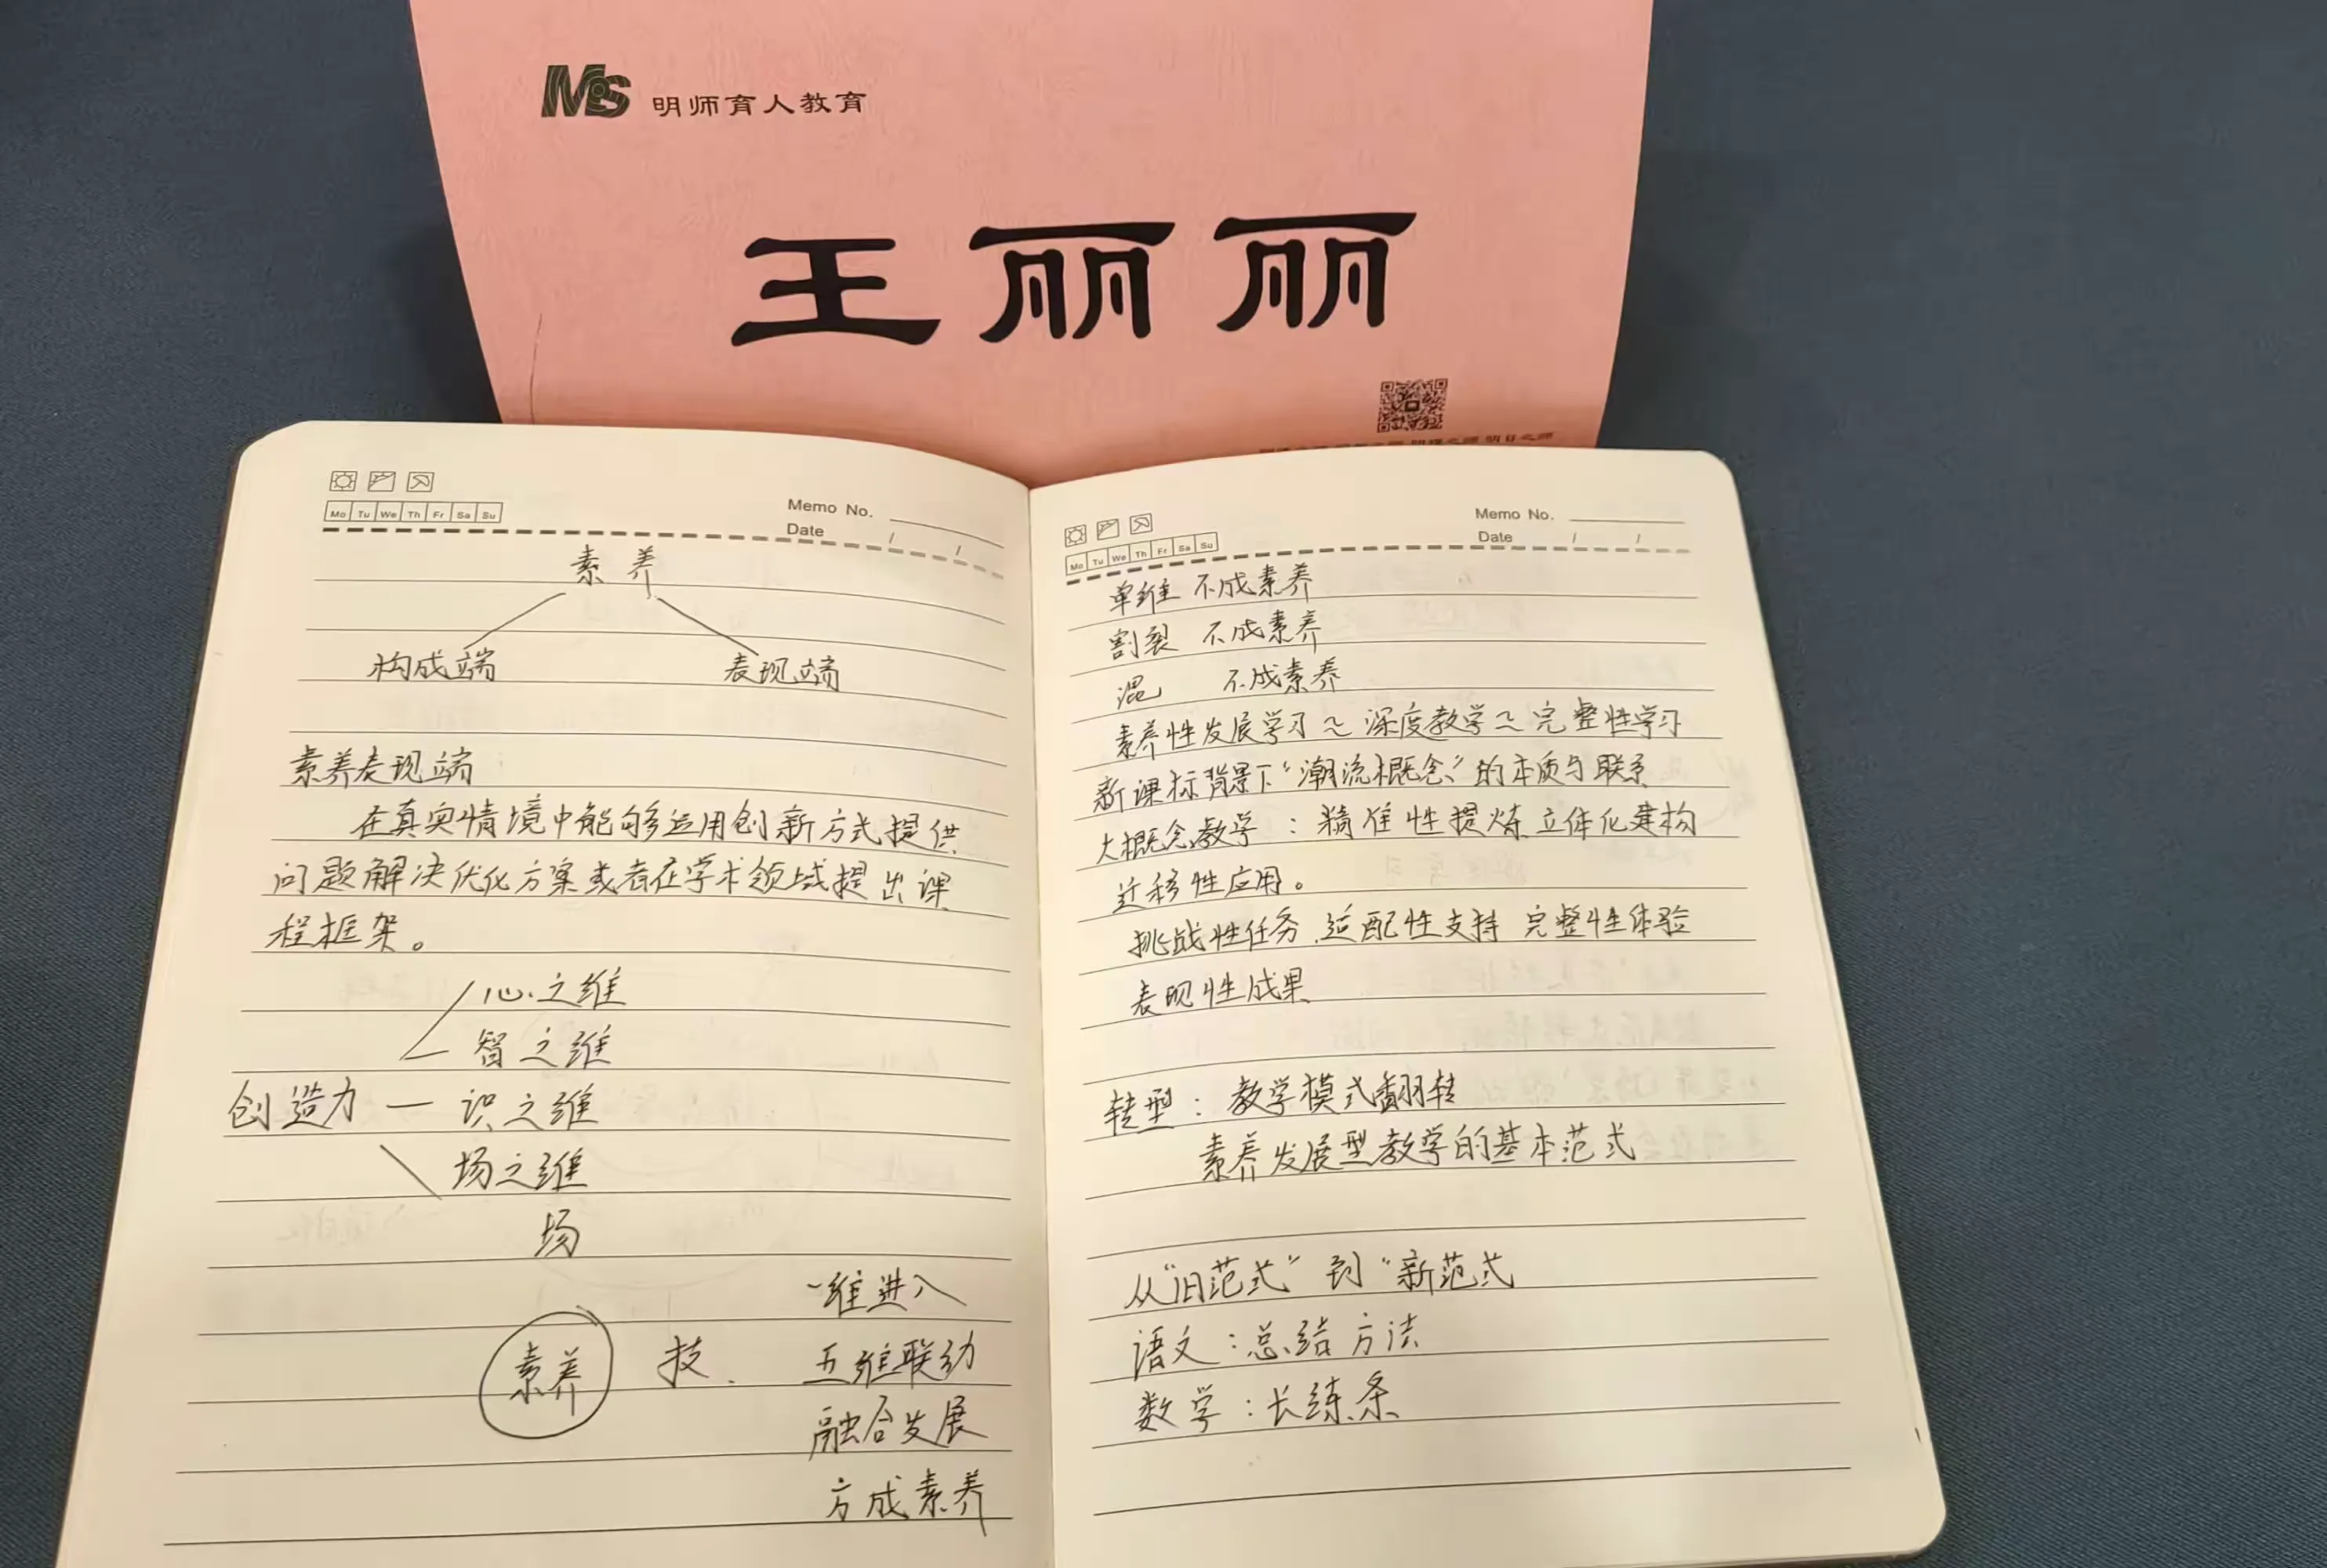 MS 明师育人教育
王丽丽
Mo Tu We Th Fr Sa Su
Memo No.
Date / /
素养
构成端 表现端
素养表现端
在真实情境中能够运用创新方式提供
问题解决优化方案或者在学术领域提出课
程框架。
心之维
智之维
创造力 — 识之维
场之维
场
一维进入
素养 技. 五维联动
融合发展
方成素养
Memo No.
Date / /
Mo Tu We Th Fr Sa Su
单维 不成素养
割裂 不成素养
混 不成素养
素养性发展学习~深度教学~完整性学习
新课标背景下“潮流概念”的本质与联系
大概念教学:精准性提炼 立体化建构
迁移性应用。
挑战性任务.适配性支持 完整性体验
表现性成果
转型:教学模式翻转
素养发展型教学的基本范式
从“旧范式”到“新范式
语文:总结方法
数学:长练条